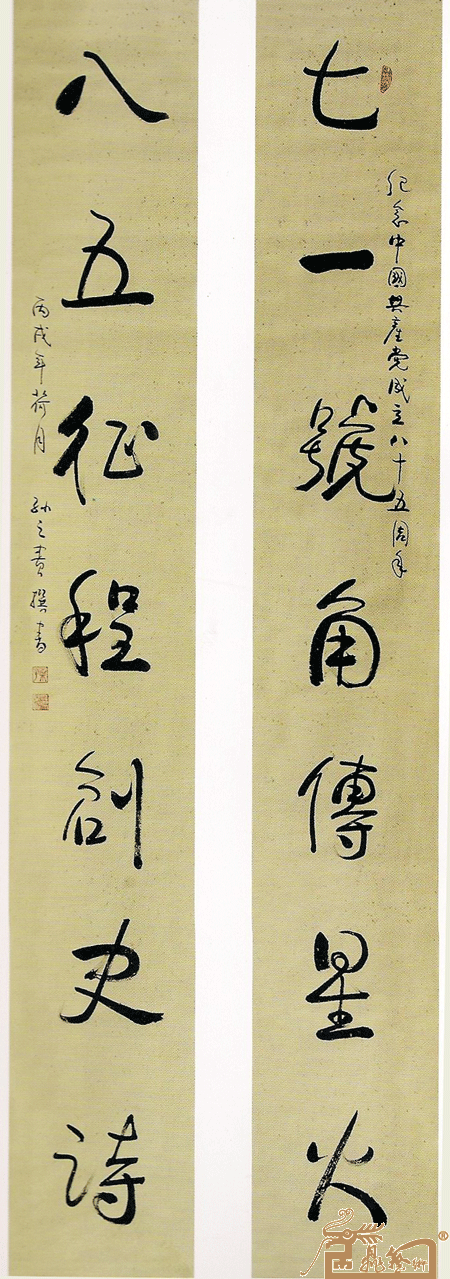 七一號角傳星火
紀念中國共產黨成立八十五周年
八五征程創史詩
丙戌年荷月 孙之贵撰書